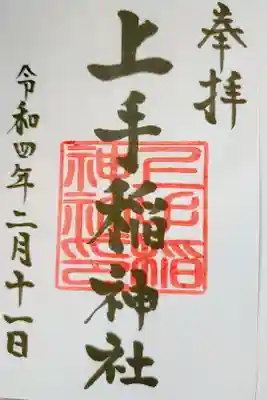 奉拝
上手稲神社
上手稲神社印
令和四年二月十一日